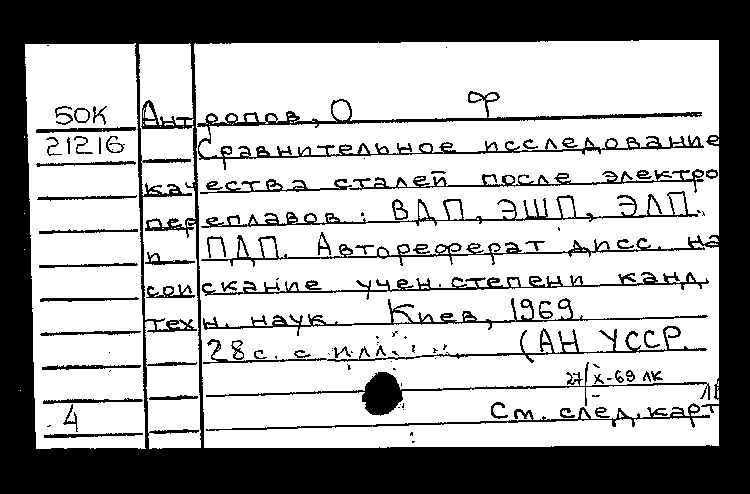 50К Антропов, О ф
21216 Сравнительное исследование
качества сталей после электро
переплавов: ВДП, ЭШП, ЭЛП.
и ПДП. Автореферат дисс. на
соискание учен. степени канд.
техн. наук. Киев, 1969.
28с. с илл. (АН УССР.
27/X-69 ЛК
4 См. след. карт